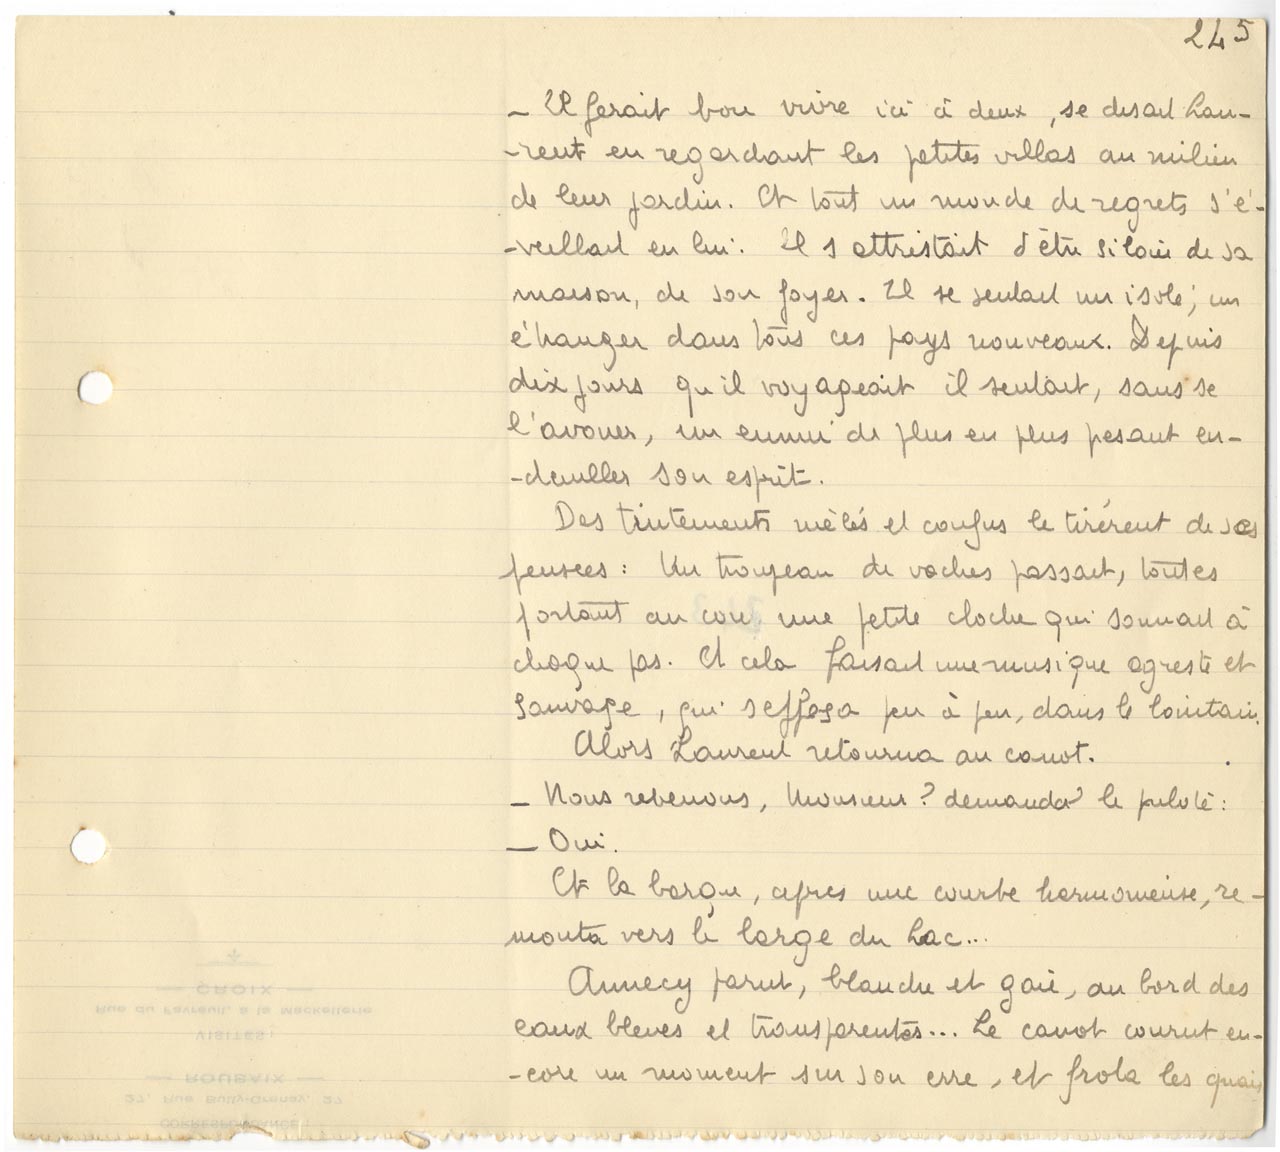 245
- Il ferait bon vivre ici à deux, se disait Lau-
-rent en regardant les petites villas au milieu
de leur jardin. Et tout un monde de regrets s'é-
-veillait en lui. Il s'attristait d'être si loin de sa
maison, de son foyer. Il se sentait un isolé, un
étranger dans tous ces pays nouveaux. Depuis
dix jours qu'il voyageait il sentait, sans se
l'avouer, un ennui de plus en plus pesant en-
-deuiller son esprit.
Des tintements mêlés et confus le tirèrent de ses
pensées : Un troupeau de vaches passait, toutes
portant au cou une petite cloche qui sonnait à
chaque pas. Et cela faisait une musique agreste et
sauvage, qui s'effaça peu à peu, dans le lointain.
Alors Laurent retourna au canot.
- Nous revenons, Monsieur ? demanda le pilote :
- Oui.
Et la barque, après une courbe harmonieuse, re-
monta vers le large du Lac...
Annecy parut, blanche et gaie, au bord des
eaux bleues et transparentes... Le canot courut en-
-core un moment sur son erre, et frola les quais
CROIX
Rue du Favreuil, à la Mackellerie
VISITES :
ROUBAIX
27, Rue Bully-Grenay, 27
CORRESPONDANCE :